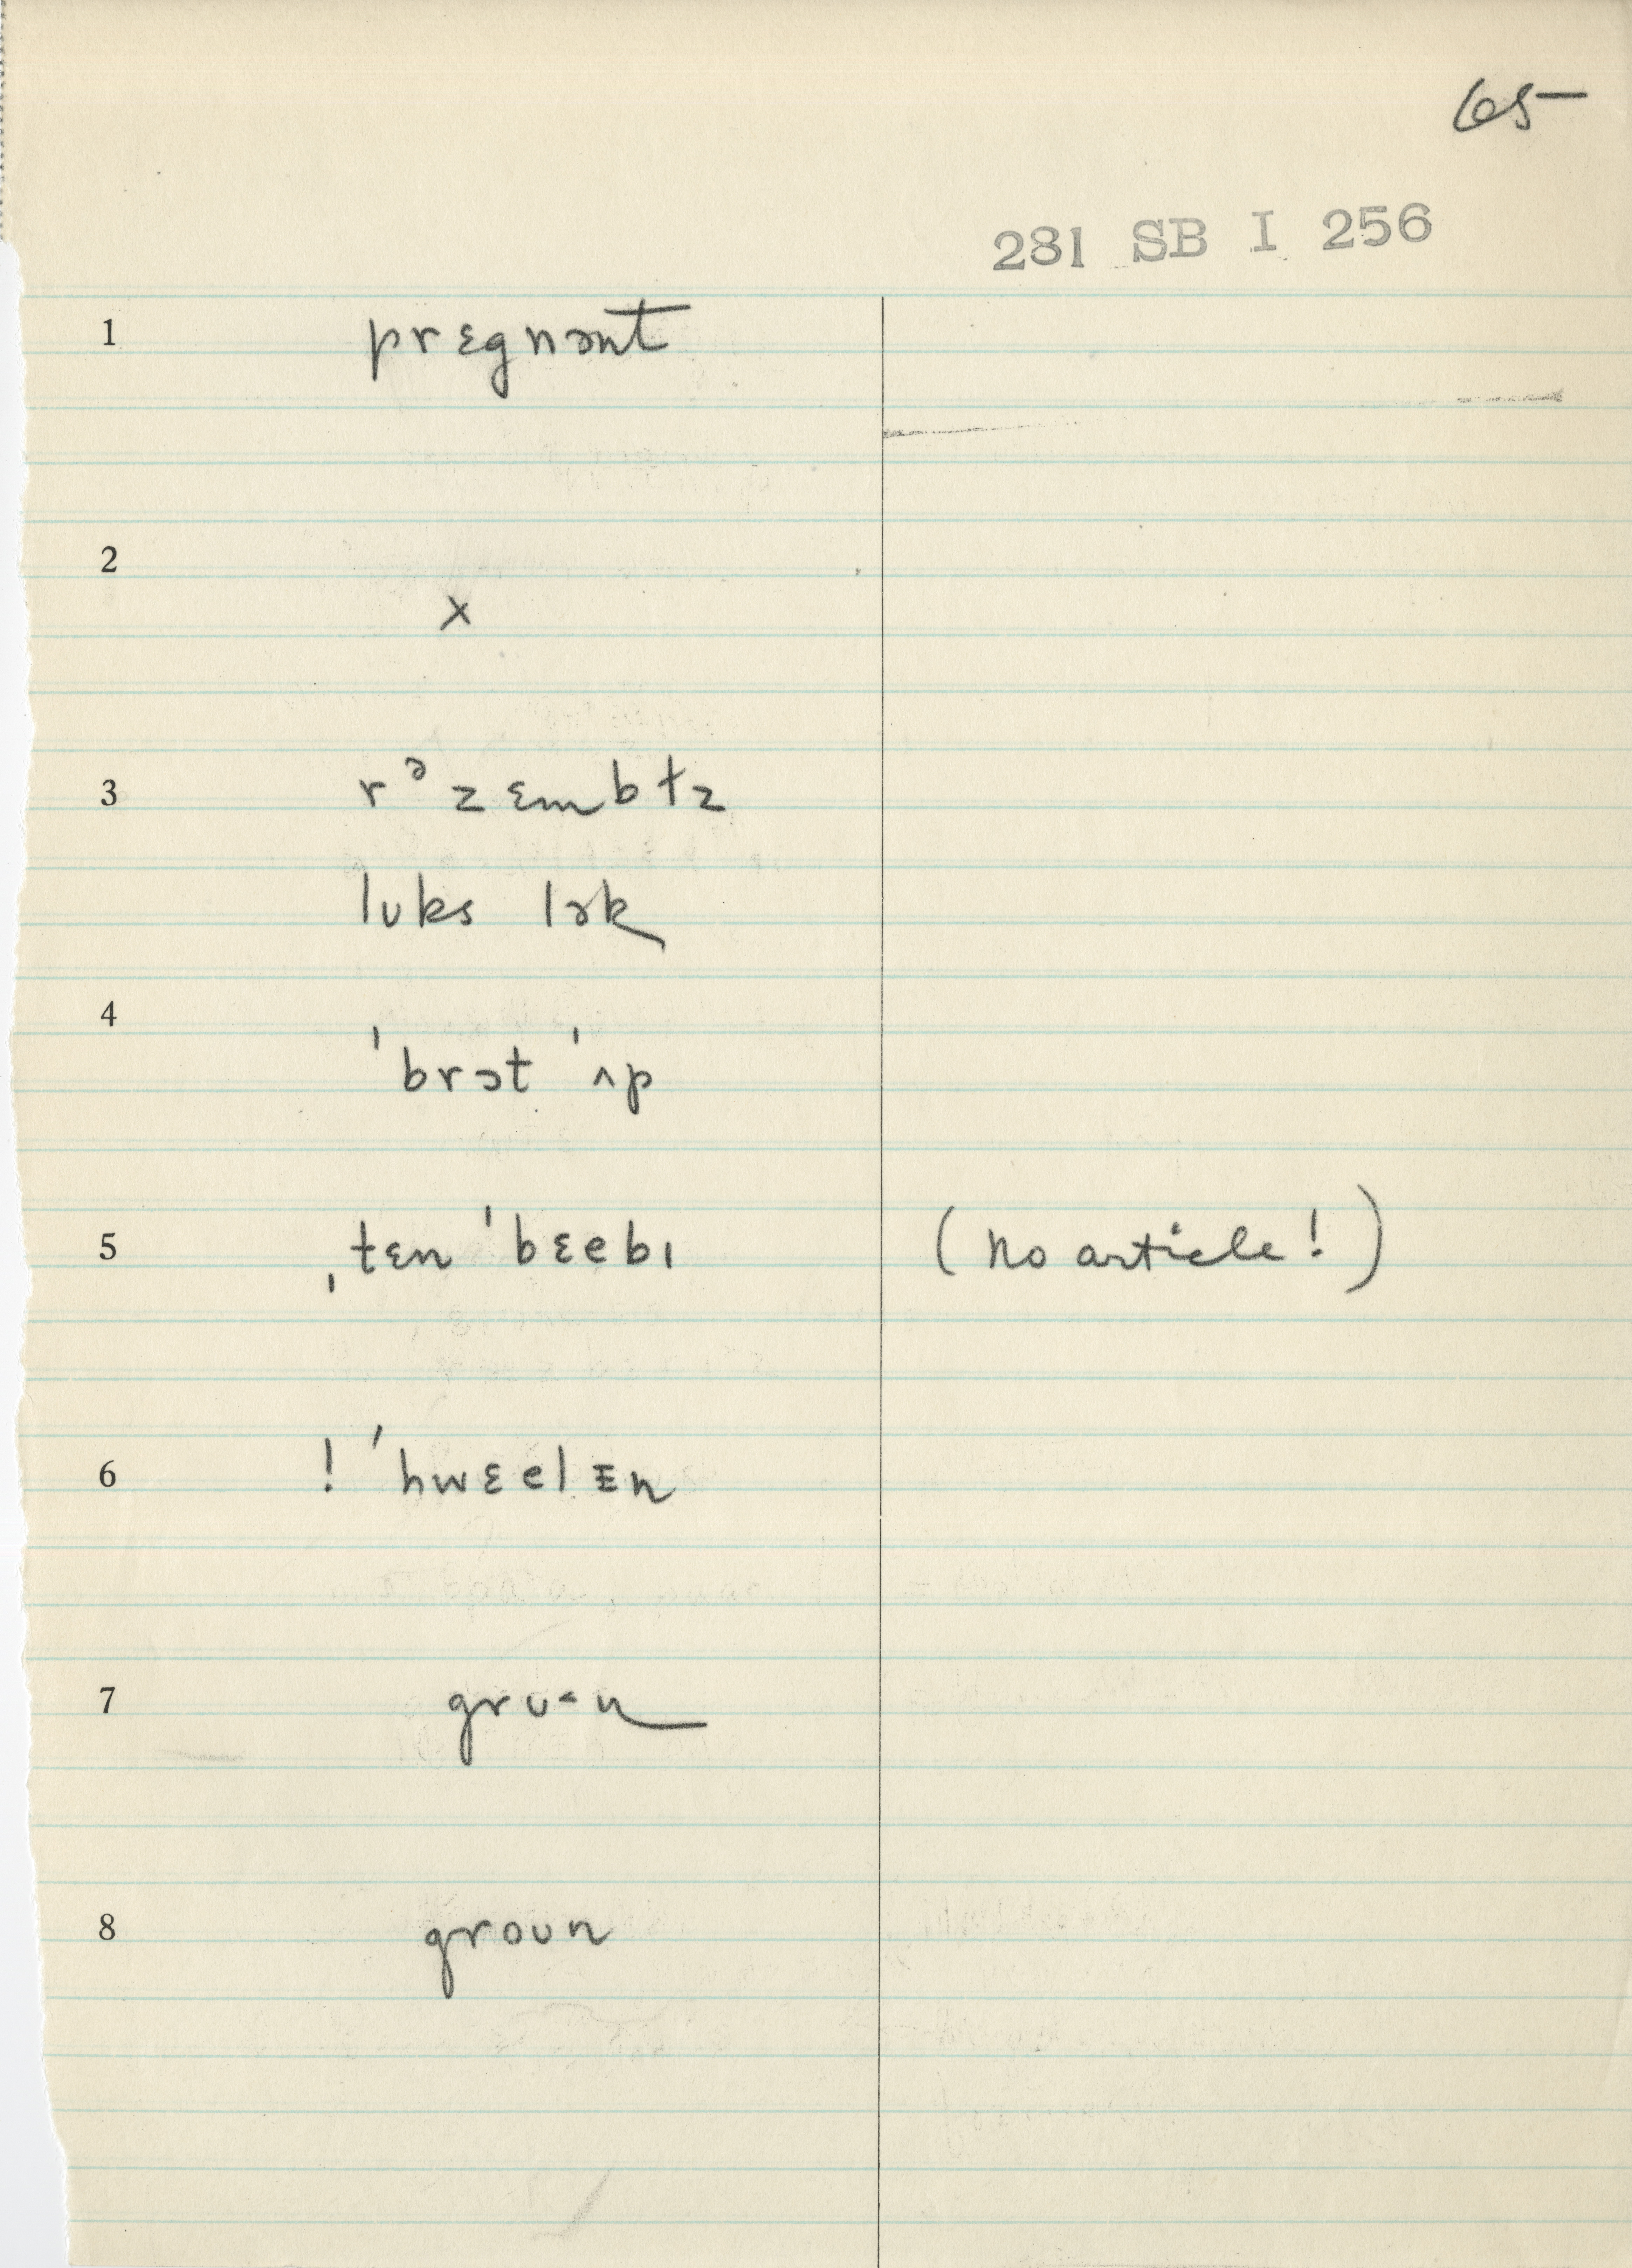 65
281 SB I 256
1 prɛgnənt
2 x
3 rᵊzɛmbɫz
lʊks lɜk
4 ˈbrɔt ˈʌp
5 ˌtɛn ˈbɛebɪ (no article!)
6 ! ˈhwɛel ᵻn
7 grʊ˂n
8 groʊn